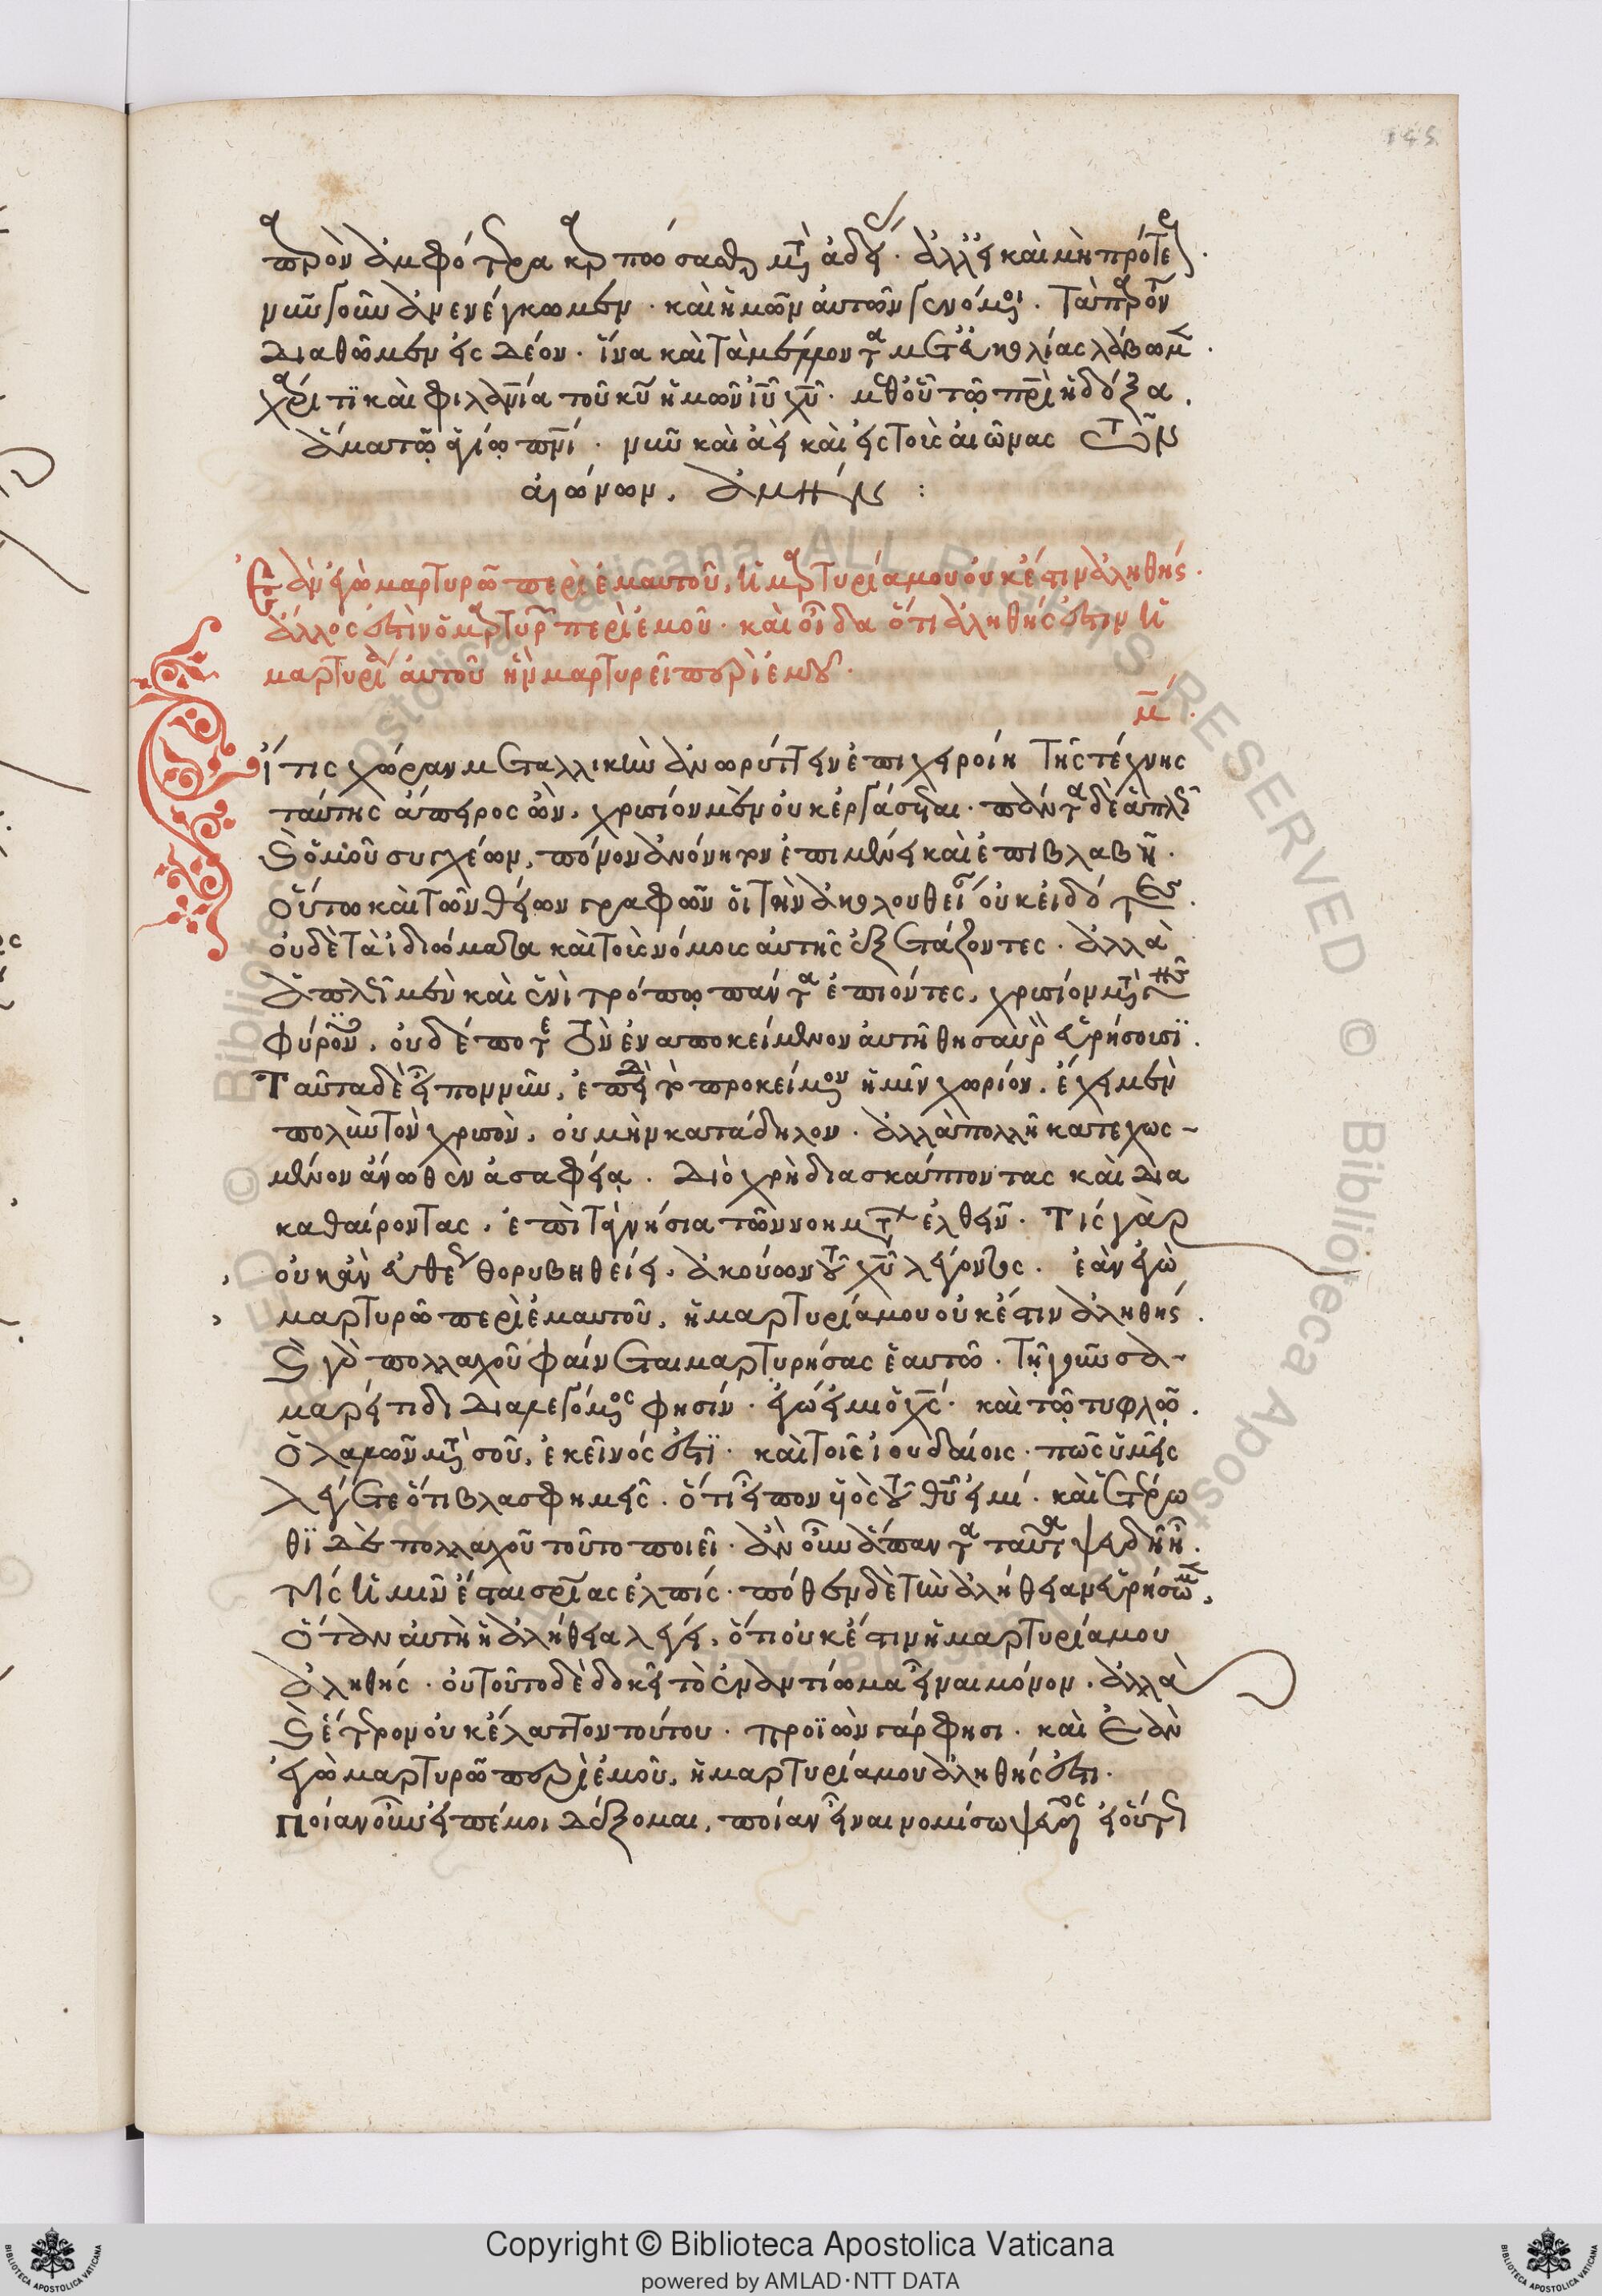 145
παρὸν ἀμφότερα καρπώσασθαι μετὰ ἀδείας. ἀλλ' εἰ καὶ μὴ πρότερον
νῦν γοῦν ἀνενέγκωμεν. καὶ ἡμῶν αὐτῶν γενόμενοι. τὰ παρὸν
διαθῶμεν εἰς δέον. ἵνα καὶ τὰ μέλλοντα μετ' εὐκολίας λάβωμεν.
χάριτι καὶ φιλανία τοῦ κυ ἡμῶν ιυ χυ. μεθ' οὗ τῷ πρι ἡ δόξα.
ἅμα τῷ ἁγίῳ πνι. νῦν καὶ ἀεὶ καὶ εἰς τοὺς αἰῶνας τῶν
αἰώνων. ἀμήν :
Ἐὰν ἐγὼ μαρτυρῶ περὶ ἐμαυτοῦ, ἡ μαρτυρία μου οὐκ ἔστιν ἀληθής.
ἄλλος ἐστὶν ὁ μαρτυρῶν περὶ ἐμοῦ. καὶ οἶδα ὅτι ἀληθής ἐστιν ἡ
μαρτυρία αὐτοῦ ἣν μαρτυρεῖ περὶ ἐμοῦ.
μ.
Εἴ τις χώραν μεταλλικὴν ἀνορύττειν ἐπιχειροίη τῆς τέχνης
ταύτης ἄπειρος ὢν, χρυσίον μὲν οὐκ ἐργάσεται. πάντα δὲ ἁπλῶς
καὶ ὁμοῦ συγχέων, πόνον ἀνόνητον ἐπιμένει καὶ ἐπιβλαβῆ.
οὕτω καὶ τῶν θείων γραφῶν οἱ τὴν ἀκολουθείαν οὐκ εἰδότες.
οὐδὲ τὰ ἰδιώματα καὶ τοὺς νόμους αὐτῆς ἐξετάζοντες. ἀλλὰ
ἁπλῶς μὲν καὶ ἑνὶ τρόπῳ πάντα ἐπιόντες, χρυσίον μετὰ γῆς
φύρουν, οὐδέποτε τὸν ἐναποκείμενον αὐτῇ θησαυρὸν εὑρήσουσι.
Ταῦτα δὲ εἶπον νῦν, ἐπειδὴ τὸ προκείμενον ἡμῖν χωρίον, ἔχει μὲν
πολὺν τὸν χρυσὸν, οὐ μὴν κατάδηλον. ἀλλὰ πολλῇ κατεχωσ-
μένον ἄνωθεν ἀσαφείᾳ. διὸ χρὴ διασκάπτοντας καὶ δια
καθαίροντας, ἐπὶ τὰ γνήσια τῶν νοημάτων ἐλθεῖν. τίς γὰρ
οὐκ ἂν εὐθέως θορυβηθείη, ἀκούων τοῦ χυ λέγοντος. ἐὰν ἐγὼ
μαρτυρῶ περὶ ἐμαυτοῦ, ἡ μαρτυρία μου οὐκ ἔστιν ἀληθής.
καὶ γὰρ πολλαχοῦ φαίνεται μαρτυρήσας ἑαυτῷ. τῇ γοῦν σα-
μαρείτιδι διαλεγόμενος φησίν. ἐγώ εἰμι ὁ χς. καὶ τῷ τυφλῷ.
ὁ λαλῶν μετὰ σοῦ, ἐκεῖνός ἐστι. καὶ τοῖς ἰουδαίοις. πῶς ὑμεῖς
λέγετε ὅτι βλασφημεῖς. ὅτι εἶπον υἱὸς τοῦ θυ εἰμί. καὶ ἑτέρω
θι δὲ πολλαχοῦ τοῦτο ποιεῖ. ἂν οὖν ἅπαντα ταῦτα ψευδῆ ἦ.
τίς ἡμῖν ἔσται σριας ἐλπίς. πόθεν δὲ τὴν ἀλήθειαν εὑρήσωμεν,
ὅταν αὐτὴ ἡ ἀλήθεια λέγει, ὅτι οὐκ ἔστιν ἡ μαρτυρία μου
ἀληθής. οὐ τοῦτο δὲ δοκεῖ τὸ ἐναντίωμα εἶναι μόνον, ἀλλὰ
καὶ ἕτερον οὐκ ἔλαττον τούτου. προϊὼν γάρ φησι. καὶ Ἐὰν
ἐγὼ μαρτυρῶ περὶ ἐμοῦ, ἡ μαρτυρία μου ἀληθής ἐστι.
Ποίαν οὖν εἰπέ μοι δέξομαι, ποίαν εἶναι νομίσω ψευδῆ
Copyright © Biblioteca Apostolica Vaticana
powered by AMLAD·NTT DATA